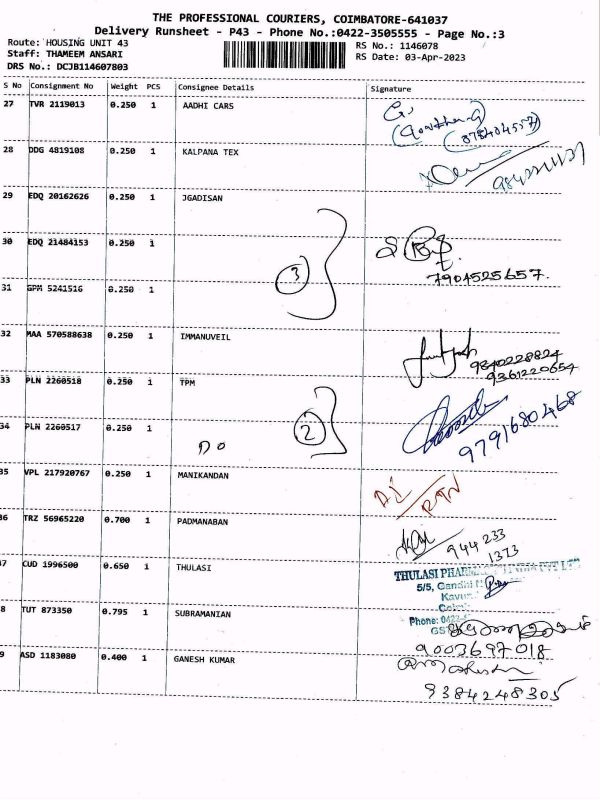 THE PROFESSIONAL COURIERS, COIMBATORE-641037
Delivery Runsheet - P43 - Phone No.:0422-3505555 - Page No.:3
Route: HOUSING UNIT 43 RS No.: 1146078
Staff: THAMEEM ANSARI RS Date: 03-Apr-2023
DRS No.: DCJB114607803
S No Consignment No Weight PCS Consignee Details Signature
27 TVR 2119013 0.250 1 AADHI CARS
28 DDG 4819108 0.250 1 KALPANA TEX
29 EDQ 20162626 0.250 1 JGADISAN
30 EDQ 21484153 0.250 1
3
7904525657.
31 GPM 5241516 0.250 1
32 MAA 570588638 0.250 1 IMMANUVEIL
9840228824
9361220654
33 PLN 2260518 0.250 1 TPM
34 PLN 2260517 0.250 1
2
DO
9791680468
35 VPL 217920767 0.250 1 MANIKANDAN
36 TRZ 56965220 0.700 1 PADMANABAN
944 233
1373
37 CUD 1996500 0.650 1 THULASI
THULASI PHARMA
5/5, Gandhi
Phone: 0422-
8 TUT 873350 0.795 1 SUBRAMANIAN
9003697018
9 ASD 1183080 0.400 1 GANESH KUMAR
9384248305